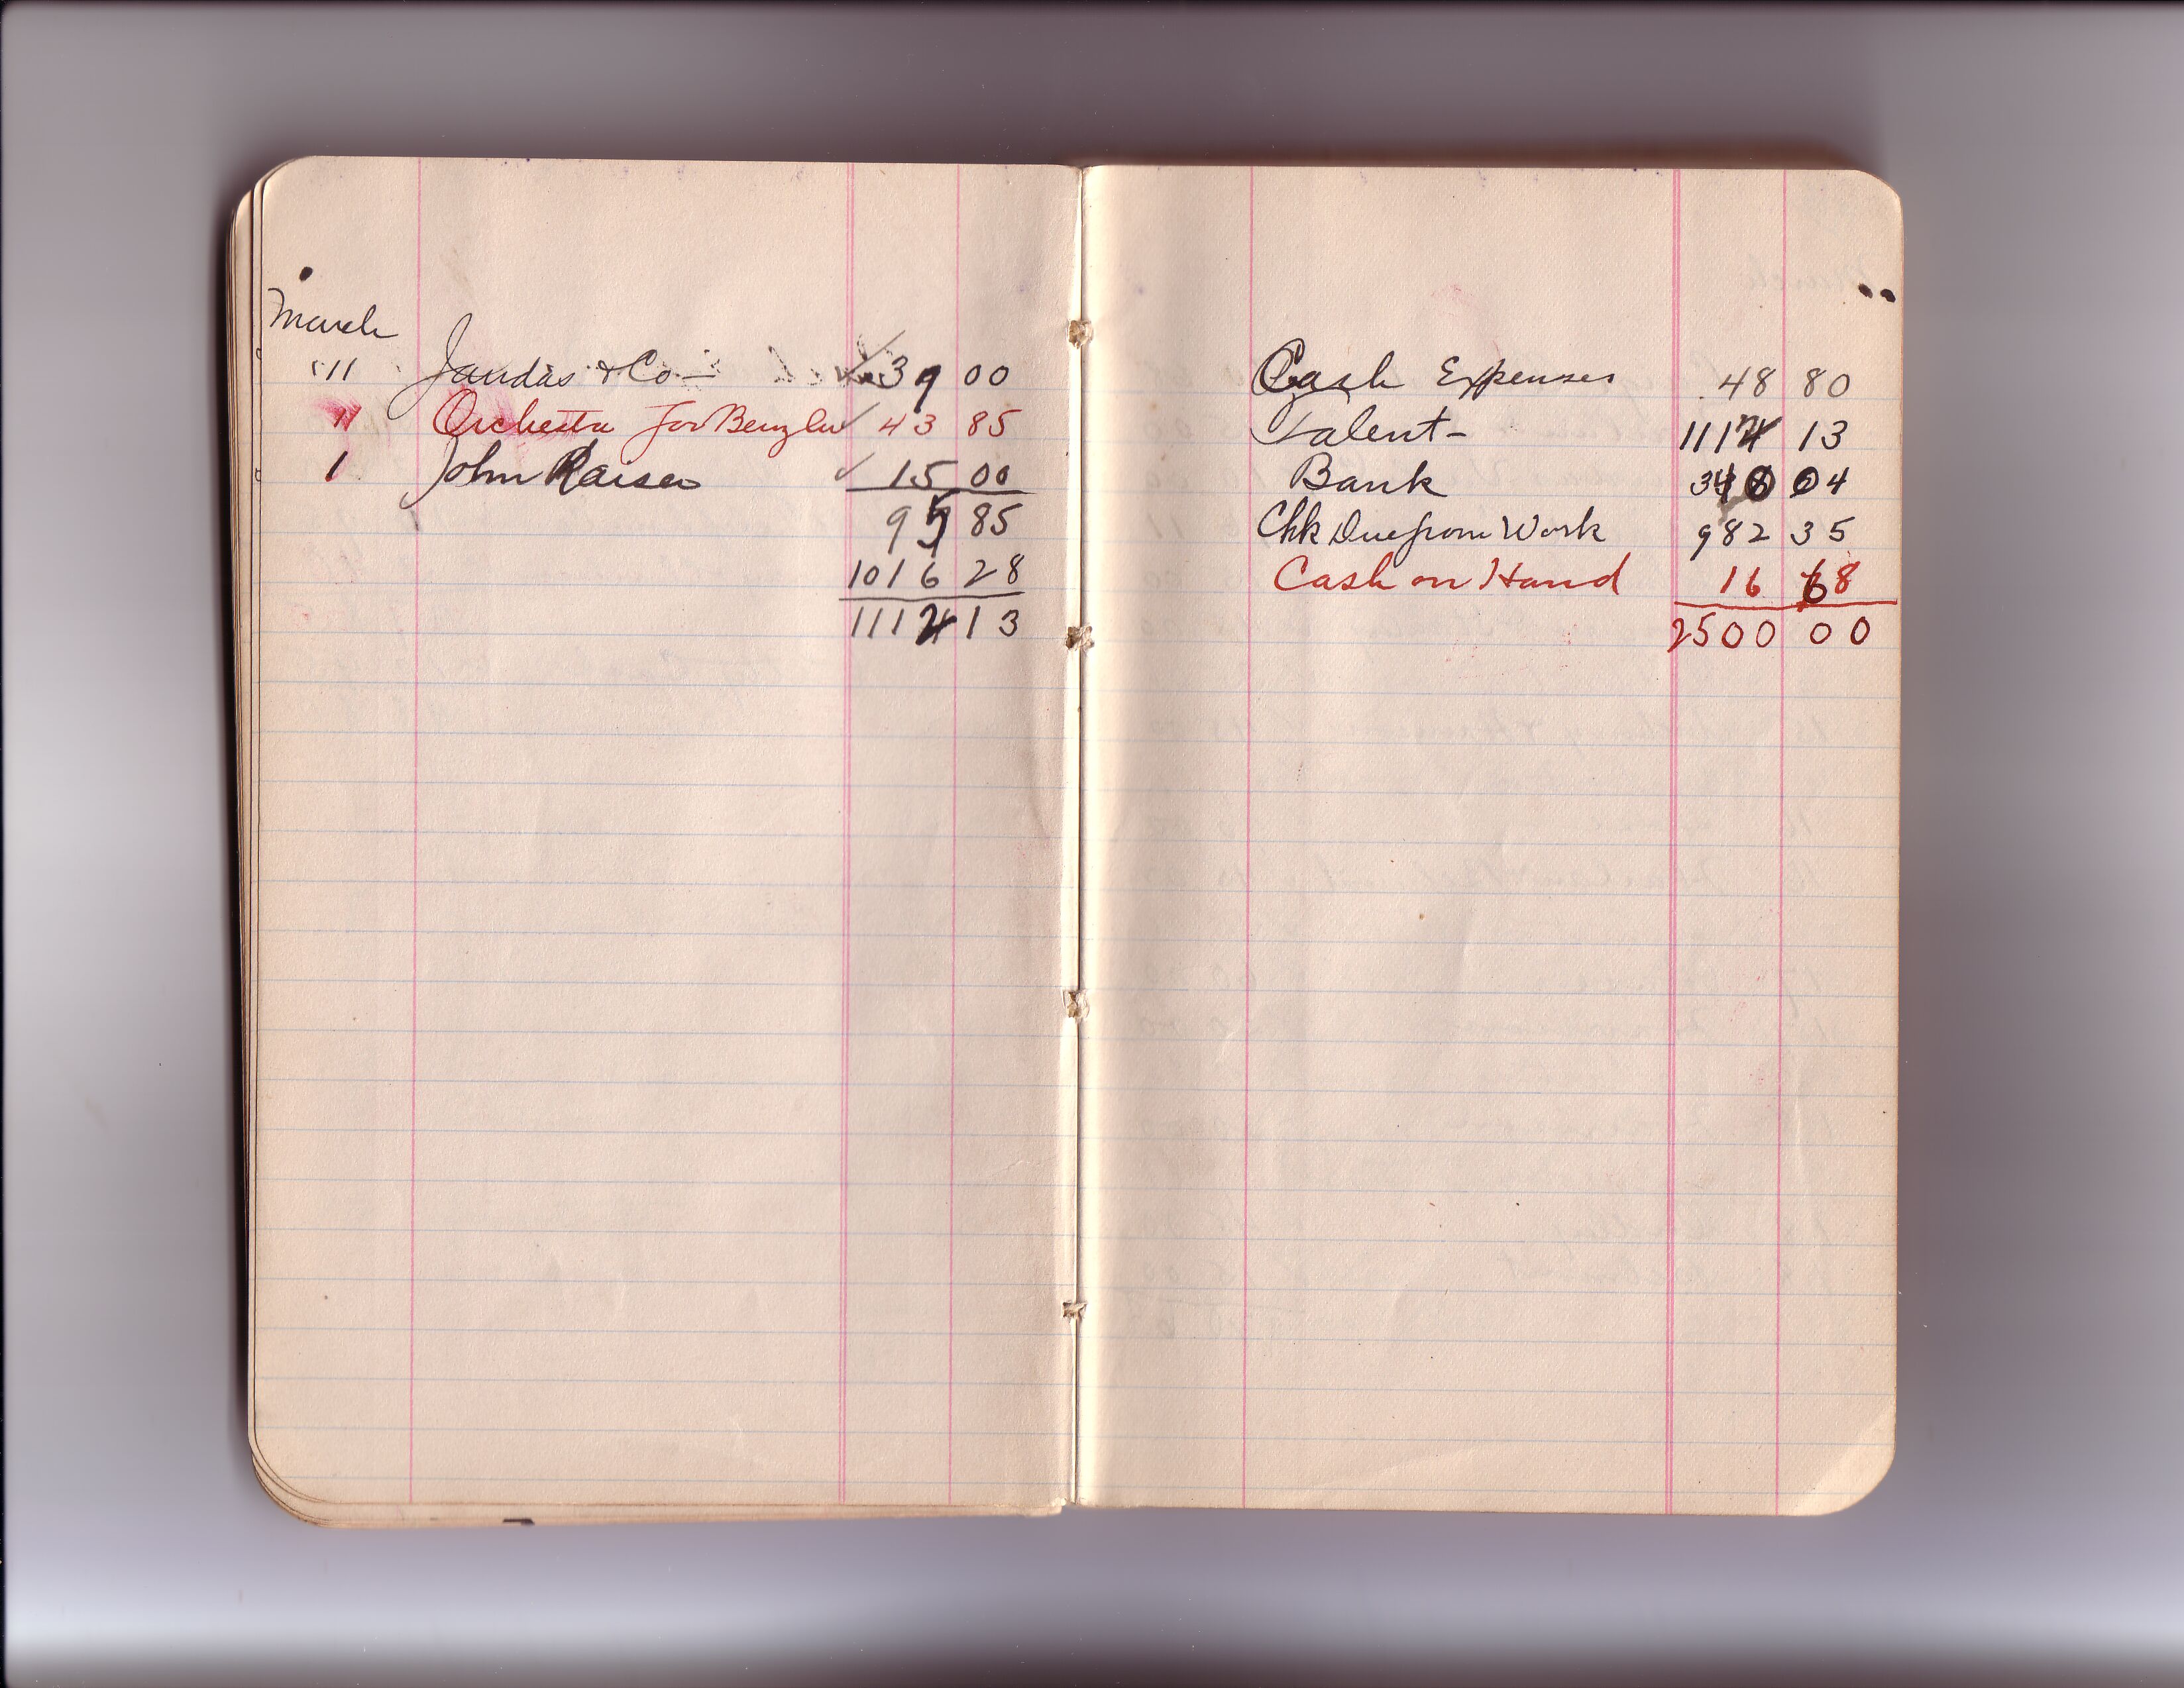 March
"11 Jandas & Co — 37 00
" Orchestra for Benzler 43 85
1 John Raiser 15 00
95 85
1016 28
1112 13
Cash Expenses 48 80
Talent - 1112 13
Bank 340 04
Chk Due from Work 982 35
Cash on Hand 16 68
2500 00